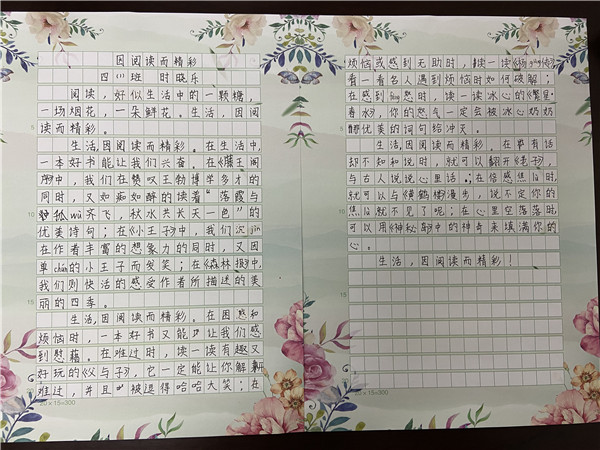 因阅读而精彩
四(1)班 时晓乐
阅读，好似生活中的一颗糖，
一场烟花，一朵鲜花。生活，因阅
读而精彩。
生活，因阅读而精彩。在生活中，
一本好书能让我们兴奋。在《滕王阁
序》中，我们在赞叹王勃博学多才的
同时，又如痴如醉的读着“落霞与
孤wù齐飞，秋水共长天一色”的
优美诗句；在《小王子》中，我们沉jìn
在作者丰富的想象力的同时，又因
单chún的小王子而发笑；在《森林报》中，
我们则快活的感受作者所描述的美
丽的四季。
生活，因阅读而精彩。在困惑和
烦恼时，一本好书又能让我们感
到慰藉。在难过时，读一读有趣又
好玩的《父与子》，它一定能让你解
难过，并且被逗得哈哈大笑；在
20×15=300
烦恼或感到无助时，读一读《
看一看名人遇到烦恼时如何破解；
在感到愁时，读一读冰心的《繁星·
春水》，你的怨气一定会被冰心奶奶
优美的词句给冲灭。
生活，因阅读而精彩。在有话
却不知和说时，就可以翻开《老子》，
与古人说说心里话；在倍感焦时，
就可以与《黄鹤楼》漫步，说不定你的
焦就不见了呢；在心里空落落时，
可以用《神秘岛》中的神奇来填满你的
心。
生活，因阅读而精彩！
20×15=300
5
10
15
5
10
15